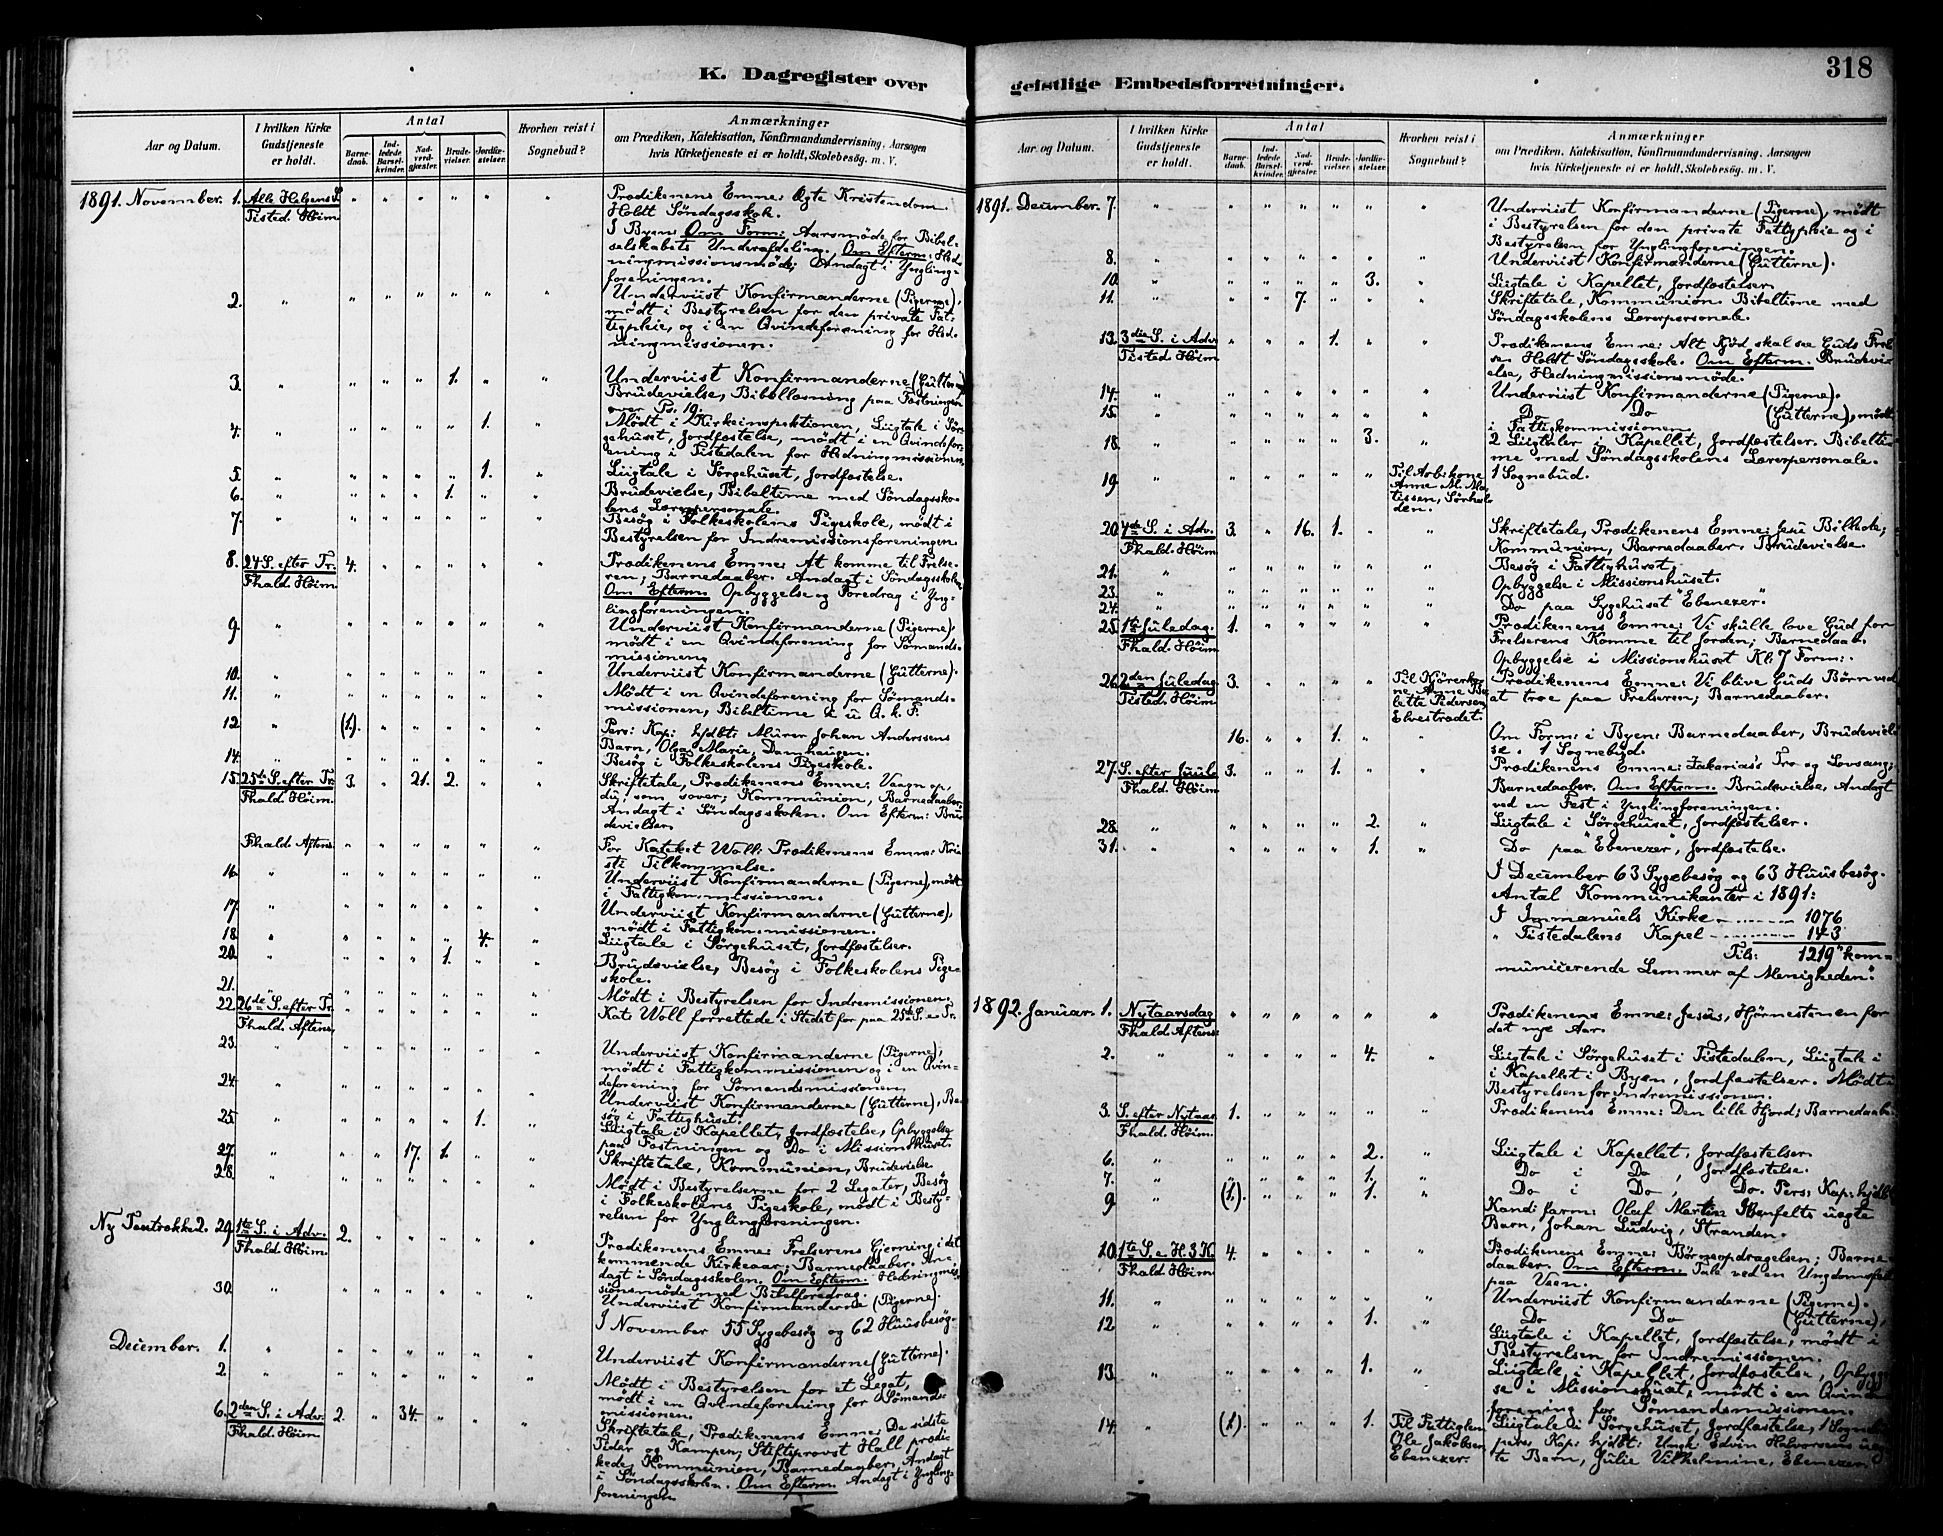 K. Dagregister over
Aar og Datum.
I hvilken Kirke Gudstjeneste er holdt.
Antal
Barnedaab.
Indledede Barselkvinder.
Nadverdgjester.
Brudevielser.
Jordfæstelser.
Hvorhen reist i Sognebud?
Anmærkninger
om Prædiken, Katekisation, Konfirmandundervisning, Aarsagen
hvis Kirketjeneste ei er holdt, Skolebesøg. m. V.
1891. November. 1. Alle Helgens S. " " " " " " Prædikenens Emne: Ægte Kristendom.
Tisted. Høim. Holdt Søndagsskole.
I Byen: Om Form: Aarsmøde for Bibel-
selskabets Underafdeling. Om Efterm: Hed-
ningmissionsmøde; Andagt i Yngling-
foreningen.
2. " " " " " " " Underviist Konfirmanderne (Pigerne),
mødt i Bestyrelsen for den private Fat-
tigpleie, og i en Qvindeforening for Hed-
ningmissionen.
3. " " " " 1. " " Underviist Konfirmanderne (Gutterne)
Brudevielse, Bibellæsning paa Fæstningen
over Ps. 19.
4. " " " " " 1. Mødt i Kirkeinspektionen, Liigtale i Sør-
gehuset, Jordfæstelse, mødt i en Qvindefor-
ening i Tistedalen for Hedningmissionen.
5. " " " " " 1. " Liigtale i Sørgehuset, Jordfæstelse.
6. " " " " 1. " " Brudevielse, Bibeltime med Søndagssko-
lens Lærerpersonale.
7. " " " " " " " Besøg i Folkeskolens Pigeskole, mødt i
Bestyrelsen for Indremissionsforeningen.
8. 24 S. efter Tr. 4. " " " " " Prædikenens Emne: At komme til Frelse-
Fhald. Høim. ren; Barnedaaber. Andagt i Søndagsskolen
Om Efterm Opbyggelse og Foredrag i Yng-
lingforeningen.
9. " " " " " " " Underviist Konfirmanderne (Pigerne),
mødt i en Qvindeforening for Sømands-
missionen.
10. " " " " " " " Underviist Konfirmanderne (Gutterne).
11. " " " " " " " Mødt i en Qvindeforening for Sømands-
missionen, Bibeltime
12. " (1). " " " " " Pers: Kap: hjdbt: Murer Johan Anderssens
Barn, Olga Marie, Damhaugen.
14. " " " " " " " Besøg i Folkeskolens Pigeskole.
15. 25de S. efter Tr. 3. " 21. 2. " " Skriftetale, Prædikenens Emne: Vaagn op,
Fhald. Høim. du, som sover; Kommunion, Barnedaaber.
Andagt i Søndagsskolen. Om Efterm: Bru-
devielser.
Fhald. Aftens. " " " " " " For Kateket Woll: Prædikenens Emne: Kri-
sti Tilkommelse.
16. " " " " " " " Underviist Konfirmanderne (Pigerne), mødt
i Fattigkommissionen.
17. " " " " " " " Underviist Konfirmanderne (Gutterne),
mødt i Fattigkommissionen.
18. " " " " " 4. " Liigtale i Sørgehuset, Jordfæstelser.
20. " " " " 1. " " Brudevielse, Besøg i Folkeskolens Pige-
skole.
21. " " " " " " " Mødt i Bestyrelsen for Indremissionen.
22. 26de S. efter Tr. " " " " " " Kat: Woll forrettede i Stedet for paa 25de S. e Tr.
Fhald. Aftens.
23. " " " " " " " Underviist Konfirmanderne (Pigerne),
mødt i Fattigkommissionen og i en Qvin-
deforening for Sømandsmissionen.
24. " " " " " " " Underviist Konfirmanderne (Gutterne), Be-
søg i Fattighuset.
25. " " " " " 1. " Liigtale i Kapellet, Jordfæstelse, Opbyggelse
paa Fæstningen og Do i Missionshuset.
27. " " " 17. 1. " " Skriftetale, Kommunion, Brudevielse.
28. " " " " " " " Mødt i Bestyrelserne for 2 Legater, Besøg
i Folkeskolens Pigeskole, mødt i Besty-
relsen for Ynglingforeningen.
Ny Textrække 2. 29. 1ste S. i Adv. 2. " " " " " Prædikenens Emne: Frelserens Gjerning i det
Fhald. Høim. kommende Kirkeaar; Barnedaaber. An-
dagt i Søndagsskolen. Om Efterm. Hedningmis-
sionsmøde med Bibelforedrag.
30. " " " " " " " Underviist Konfirmanderne (Pigerne).
I November 55 Sygebesøg og 62 Huusbesøg.
December. 1. " " " " " " " Underviist Konfirmanderne (Gutterne).
2. " " " " " " " Mødt i Bestyrelsen for et Legat,
mødt i en Qvindeforening for Sømands-
missionen.
6. 2den S. i Adv. 2. " 34. " " " Skriftetale, Prædikenens Emne: De sidste
Fhald. Høim Tider og Kampen; Stiftsprovst Hall prædi-
kede, Kommunion, Barnedaaber. Andagt
i Søndagsskolen. Om Efterm. Andagt i Yngling-
foreningen
geistlige Embedsforretninger.
318
Aar og Datum.
I hvilken Kirke Gudstjeneste er holdt.
Antal
Barnedaab.
Indledede Barselkvinder.
Nadverdgjester.
Brudevielser.
Jordfæstelser.
Hvorhen reist i Sognebud?
Anmærkninger
om Prædiken, Katekisation, Konfirmandundervisning, Aarsagen
hvis Kirketjeneste ei er holdt, Skolebesøg. m. V.
1891. December. 7. " " " " " " " Underviist Konfirmanderne (Pigerne), mødt
i Bestyrelsen for den private Fattigpleie og i
Bestyrelsen for Ynglingforeningen.
8. " " " " " " " Underviist Konfirmanderne (Gutterne).
10. " " " " " 3. " Liigtale i Kapellet, Jordfæstelser.
11. " " " 7. " " " Skriftetale, Kommunion. Bibeltime med
Søndagsskolens Lærerpersonale.
13. 3die S. i Adv. " " " 1. " " Prædikenens Emne: Alt Kjød skal see Guds Frel-
Tisted. Høim. se. Holdt Søndagsskole. Om Efterm. Brudevi-
else, Hedningmissionsmøde.
14. " " " " " " " Underviist Konfirmanderne (Pigerne).
15. " " " " " " " Do Do (Gutterne), mødt
i Fattigkommissionen.
18. " " " " " 3. " 2 Liigtaler i Kapellet, Jordfæstelser. Bibelti-
me med Søndagsskolens Lærerpersonale.
19. " " " " " " Til Arb: kone 1 Sognebud.
Anne M. Ma-
tissen, Sørhal-
den.
20. 4de S. i Adv. 3. " 16. 1. " " Skriftetale, Prædikenens Emne: Jesu Billede;
Fhald. Høim. Kommunion, Barnedaaber. Brudevielse.
21. " " " " " " " Besøg i Fattighuset.
23. " " " " " " " Opbyggelse i Missionshuset.
24. " " " " " " " Do paa Sygehuset "Ebenezer".
25. 1ste Juledag. 1. " " " " " Prædikenens Emne: Vi skulle love Gud for
Fhald. Høim. Frelserens Komme til Jorden; Barnedaab.
Opbyggelse i Missionshuset Kl: 7 Form:.
26. 2den Juledag 3. " " " " Til Kjørerko- Prædikenens Emne: Vi blive Guds Børn ved
Tisted. Høim. ne Anne Be- at troe paa Frelseren; Barnedaaber.
lette Pedersen
Ekestrædet.
16. " " 1. " " Om Form: i Byen: Barnedaaber, Brudeviel-
se. 1 Sognebud.
27. S. efter Juul 3. " " 1. " " Prædikenens Emne: Zakarias's Tro og Lovsang;
Fhald. Høim. Barnedaaber. Om Efterm. Brudevielse, Andagt
ved en Fest i Ynglingforeningen.
28. " " " " " 2. " Liigtale i Sørgehuset, Jordfæstelser.
31. " " " " " 1. " Do paa "Ebenezer", Jordfæstelse.
I December 63 Sygebesøg og 63 Huusbesøg.
Antal Kommunikanter i 1891:
I Immanuels Kirke 1076
" Tistedalens Kapel 143
Tils: 1219 "kom-
municerende Lemmer af Menigheden".
1892. Januar. 1. Nytaarsdag " " " " " " Prædikenens Emne: Jesus, Hjørnestenen for
Fhald. Aftens: det nye Aar.
2. " " " " " 4. " Liigtale i Sørgehuset i Tistedalen, Liigtale i
i Kapellet i Byen, Jordfæstelser. Mødt i
Bestyrelsen for Indremissionen.
3. S. efter Nytaar. 1. " " " " " Prædikenens Emne: Den lille Hjord; Barnedaab.
Fhald. Høim.
6. " " " " " 2. " Liigtale i Kapellet, Jordfæstelser.
7. " " " " " 1. " Do i Do, Jordfæstelse.
9. " (1). " " " 1. " Do i Do, Do. Pers: Kap: hjdbt:
Kand: farm: Olaf Martin uægte
Barn, Johan Ludvig, Stranden.
10. 1ste S. e. H. 3 K. 4. " " " " " Prædikenens Emne: Børneopdragelsen; Barne-
Fhald. Høim. daaber. Om Efterm. Tale ved en Ungdomsfest
paa Veden.
11. " " " " " " " Underviist Konfirmanderne (Pigerne).
12. " " " " " 1. " Do Do (Gutterne),
Liigtale i Kapellet, Jordfæstelse, mødt i
Bestyrelsen for Indremissionen.
13. " " " " " 1. " Liigtale i Kapellet, Jordfæstelse, Opbygg-
se i Missionshuset, mødt i en Qvinde-
forening for Sømandsmissionen.
14. " (1). " " " 1. Til Fattiglem Liigtale i Sørgehuset, Jordfæstelse, 1 Sogneb:
Ole Jakobsen pers, Kap: hjdbt: Ungk: Edvin Halvorsens uæg-
Ebenezer. te Barn, Julie Vilhelmine, Ebenezer.